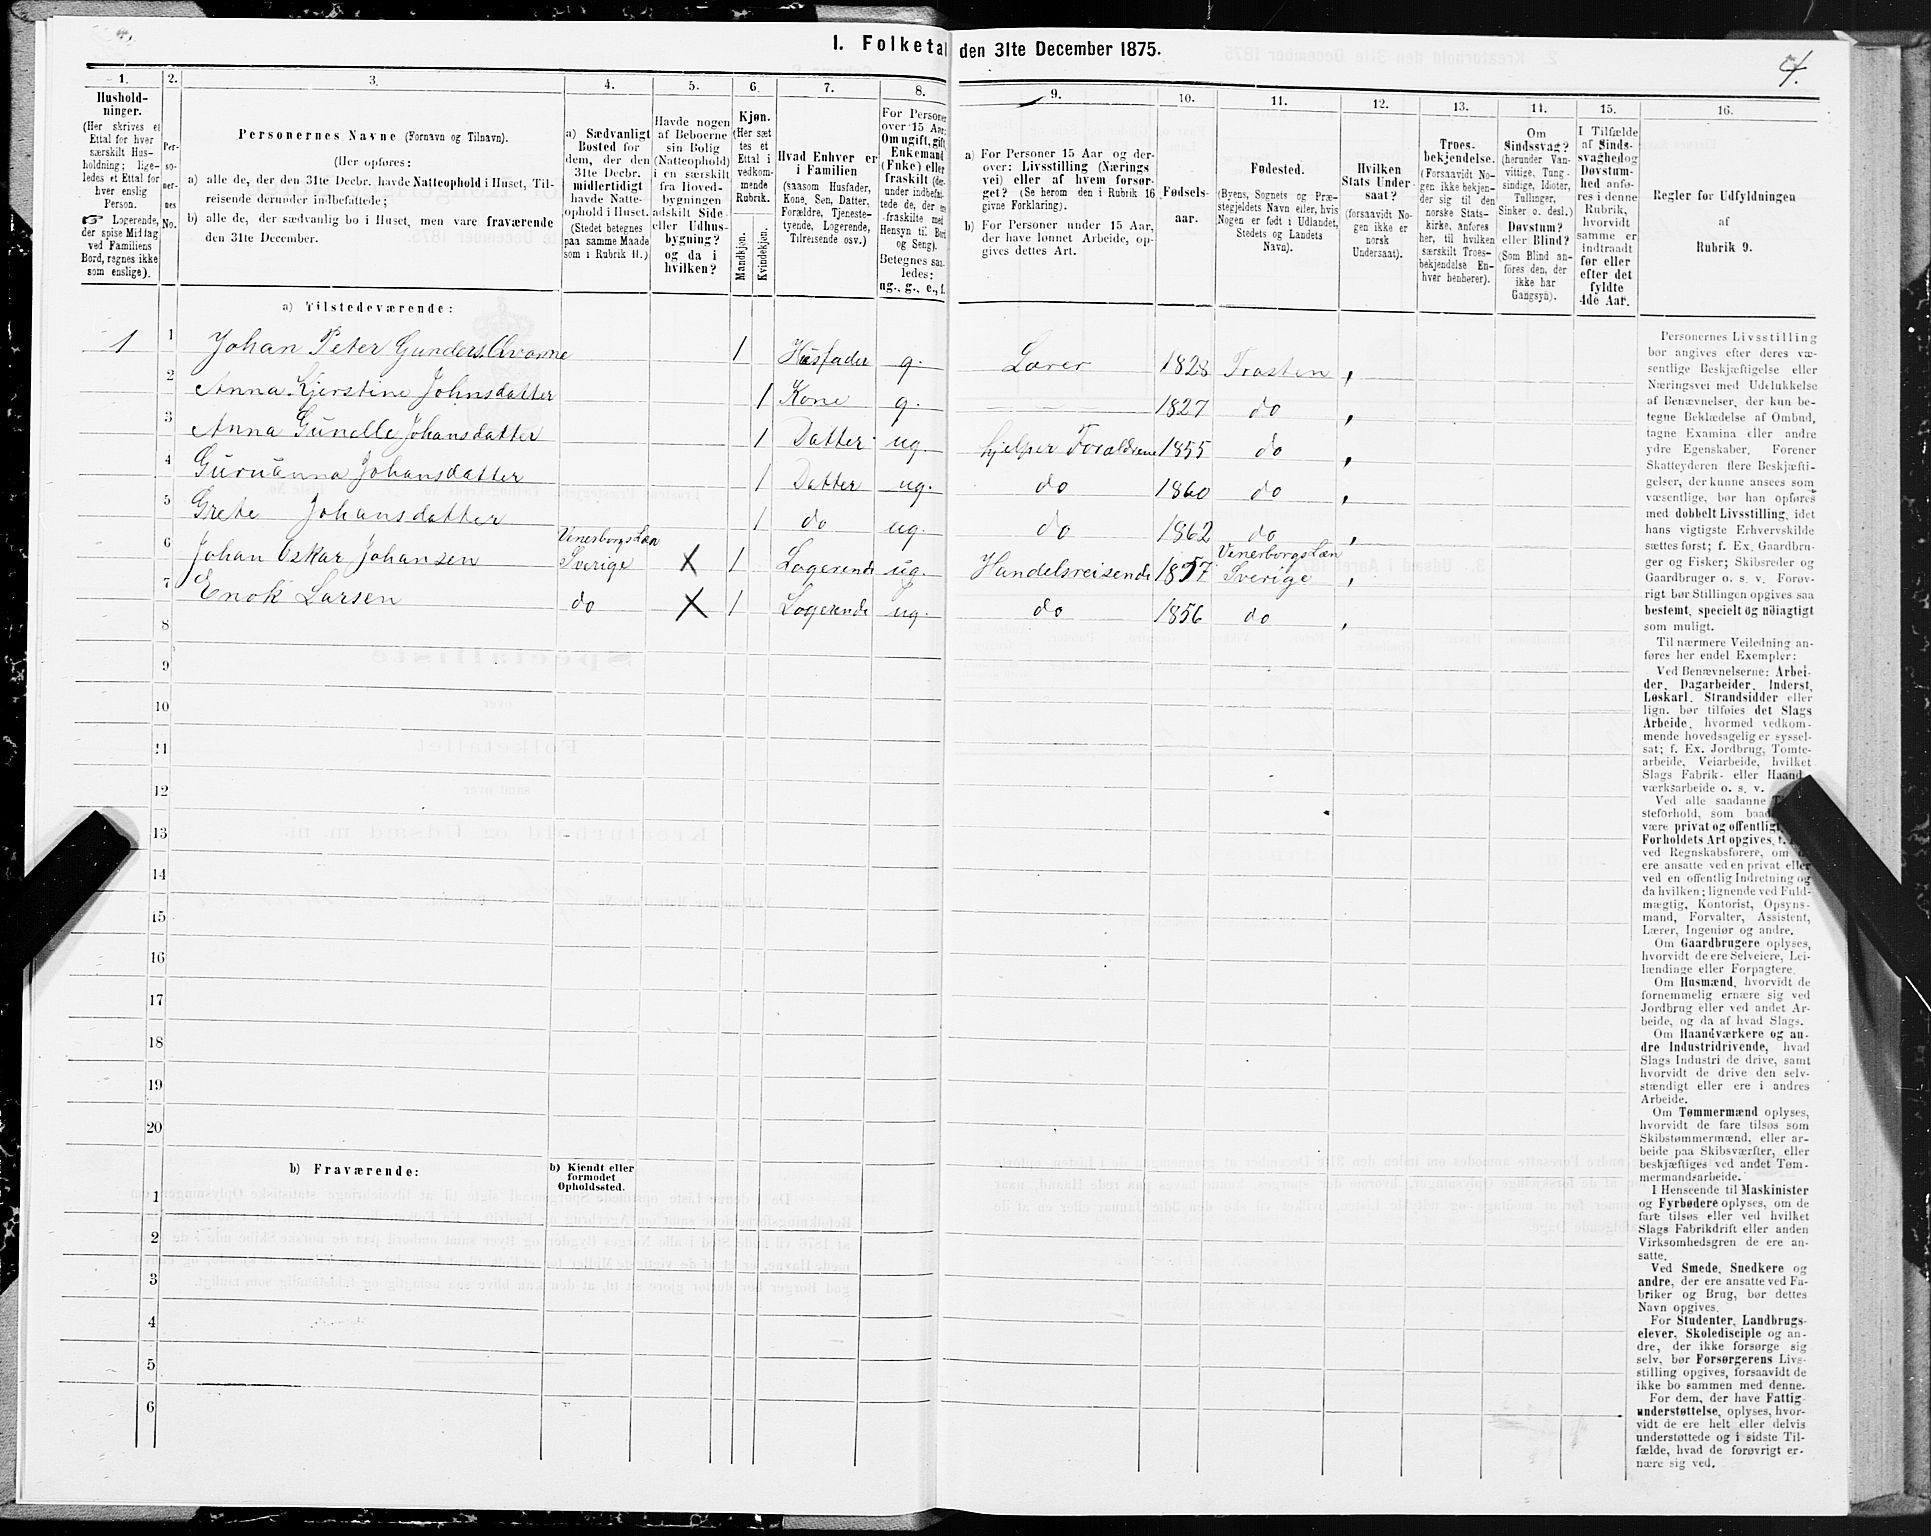 I. Folketal den 31te December 1875.
4.
1. 2. 3. 4. 5. 6. 7. 8. 9. 10. 11. 12. 13. 14. 15. 16.
Hushold-
ninger.
(Her skrives et
Ettal for hver
særskilt Hus-
holdning; lige-
ledes et Ettal for
hver enslig
Person.
☞ Logerende,
der spise Middag
ved Familiens
Bord, regnes ikke
som enslige).
Per-
so-
ner-
nes
No.
Personernes Navne (Fornavn og Tilnavn).
(Her opføres:
a) alle de, der den 31te Decbr. havde Natteophold i Huset, Til-
reisende derunder indbefattede;
b) alle de, der sædvanlig bo i Huset, men vare fraværende
den 31te December.
a) Sædvanligt
Bosted for
dem, der den
31te Decbr.
midlertidigt
havde Natte-
ophold i Huset.
(Stedet betegnes
paa samme Maade
som i Rubrik 11.)
Havde nogen
af Beboerne
sin Bolig
(Natteophold)
i en særskilt
fra Hoved-
bygningen
adskilt Side-
eller Udhus-
bygning?
og da i
hvilken?
Kjøn.
(Her sæt
tes et
Ettal i
vedkom-
mende
Rubrik.
Mandkjøn.
Kvindekjøn.
Hvad Enhver er
i Familien
(saasom Husfader,
Kone, Søn, Datter,
Forældre, Tjeneste-
tyende, Logerende,
Tilreisende osv.)
For Personer
over 15 Aar:
Om ugift, gift,
Enkemand
(Enke) eller
fraskilt (der-
under indbefat-
tede de, der ere
fraskilte med
Hensyn til Bord
og Seng).
Betegnes saa-
ledes:
ug., g., e., f.
a) For Personer 15 Aar og der-
over: Livsstilling (Nærings
vei) eller af hvem forsør-
get? (Se herom den i Rubrik 16
givne Forklaring).
b) For Personer under 15 Aar,
der have lønnet Arbeide, op-
gives dettes Art.
Fødsels-
aar.
Fødested.
(Byens, Sognets og Præ-
stegjeldets Navn eller, hvis
Nogen er født i Udlandet,
Stedets og Landets
Navn).
Hvilken
Stats Under-
saat?
(forsaavidt No-
gen ikke er
norsk
Undersaat).
Troes-
bekjendelse.
(Forsaavidt No-
gen ikke bekjen-
der sig til den
norske Stats-
kirke, anføres
her, til hvilken
særskilt Troes-
bekjendelse En-
hver henhører).
Om
Sindssvag?
(herunder Van-
vittige, Tung-
sindige, Idioter,
Tullinger,
Sinker o. desl.)
Døvstum?
eller Blind?
(Som Blind an-
føres den, der
ikke har
Gangsyn).
I Tilfælde
af Sinds-
svaghed og
Døvstum-
hed anfø-
res i denne
Rubrik,
hvorvidt
samme er
indtraadt
før eller
efter det
fyldte
4de Aar.
Regler for Udfyldningen
af
Rubrik 9.
a) Tilstedeværende:
1 1 Johan Peter Gunders. 1 Husfader g. Lærer 1828 Trosten
2 Anna Kjerstine Johnsdatter 1 Kone g. 1827 do
3 Anna Gunelle Johansdatter 1 Datter ug. hjelper Foraldrene 1855 do
4 Guruanna Johansdatter 1 Datter ug. do 1860 do
5 Grete Johansdatter 1 do ug do 1862 do
6 Johan Oskar Johansen Venersborgs Læn Sverige X 1 Logerende ug. Handelsreisende 1857 Venersborgs Læn Sverige
7 Enok Larsen do X 1 Logerende ug. do 1856 do
8
9
10
11
12
13
14
15
16
17
18
19
20
b) Fraværende:
b) Kjendt eller
formodet
Opholdssted.
1
2
3
4
5
6
Personernes Livsstilling
bør angives efter deres væ-
sentlige Beskjæftigelse eller
Næringsvei med Udelukkelse
af Benævnelser, der kun be-
tegne Beklædelse af Ombud,
tagne Examina eller andre
ydre Egenskaber. Forener
Skatteyderen flere Beskjæfti-
gelser, der kunne ansees som
væsentlige, bør han opføres
med dobbelt Livsstilling, idet
hans vigtigste Erhvervskilde
sættes først; f. Ex. Gaardbru-
ger og Fisker; Skibsreder og
Gaardbruger o. s. v. Forøv-
rigt bør Stillingen opgives saa
bestemt, specielt og nøiagtigt
som muligt.
Til nærmere Veiledning an-
føres her endel Exempler:
Ved Benævnelserne: Arbei-
der, Dagarbeider, Inderst,
Løskarl, Strandsidder eller
lign. bør tilføies det Slags
Arbeide, hvormed vedkom-
mende hovedsagelig er syssel-
sat; f. Ex. Jordbrug, Tomte-
arbeide, Veiarbeide, hvilket
Slags Fabrik- eller Haand-
værksarbeide o. s. v.
Ved alle saadanne
steforhold, som
være privat og offentligt,
Forholdets Art opgives,
ved Regnskabsførere, om
ere ansatte ved en privat eller
ved en offentlig Indretning og
da hvilken; lignende ved Fuld-
mægtig, Kontorist, Opsyns-
mand, Forvalter, Assistent,
Lærer, Ingeniør og andre.
Om Gaardbrugere oplyses,
hvorvidt de ere Selveiere, Lei-
lændinge eller Forpagtere.
Om Husmænd, hvorvidt de
fornemmelig ernære sig ved
Jordbrug eller ved andet Ar-
beide, og da af hvad Slags.
Om Haandværkere og an-
dre Industridrivende, hvad
Slags Industri de drive, samt
hvorvidt de drive den selv-
stændigt eller ere i andres
Arbeide.
Om Tømmermænd oplyses,
hvorvidt de fare tilsøs som
Skibstømmermænd, eller ar-
beide paa Skibsværfter, eller
beskjæftiges ved andet Tøm-
mermandsarbeide.
I Henseende til Maskinister
og Fyrbødere oplyses, om de
fare tilsøs eller ved hvilket
Slags Fabrikdrift eller anden
Virksomhedsgren de ere an-
satte.
Ved Smede, Snedkere og
andre, der ere ansatte ved Fa-
briker og Brug, bør dettes
Navn opgives.
For Studenter, Landbrugs-
elever, Skoledisciple og an-
dre, der ikke forsørge sig
selv, bør Forsørgerens Livs-
stilling opgives, forsaavidt de
ikke bo sammen med denne.
For dem, der have Fattig-
understøttelse, oplyses, hvor-
vidt de ere helt eller delvis
understøttede og i sidste Til-
fælde, hvad de forøvrigt er-
nære sig ved.